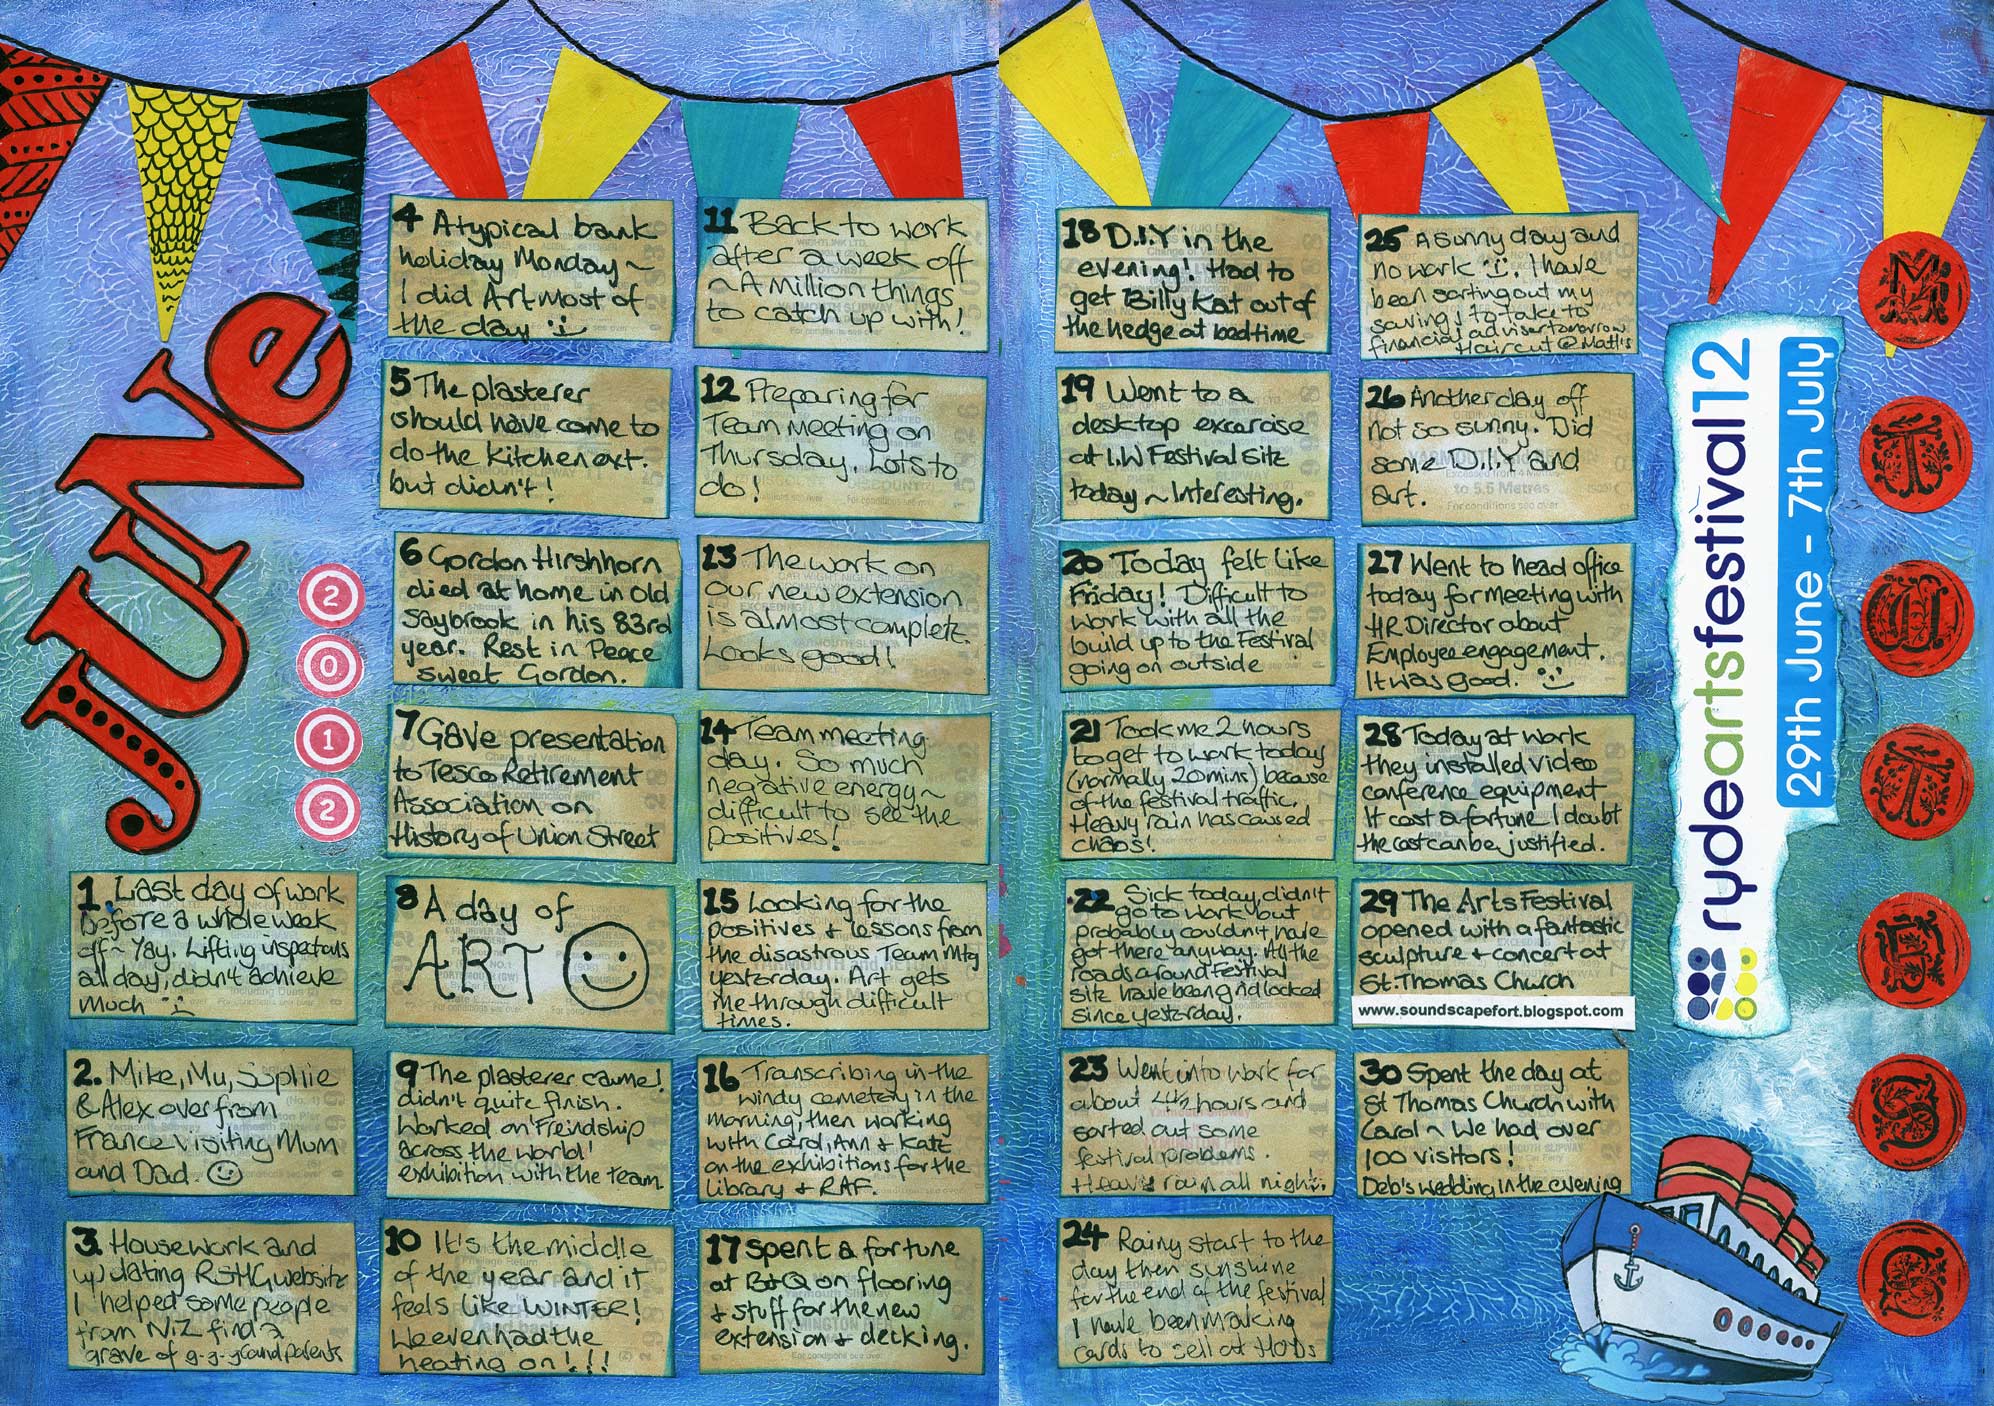 JUNe
2
0
1
2
1. Last day of work
before a whole week
off ~ Yay. Lifting inspections
all day, didn't achieve
much
2. Mike, Mu, Sophie
& Alex over from
France visiting Mum
and Dad.
3. Housework and
updating RSHG website
I helped some people
from N.Z find a
grave of g-g-grandparents
4 A typical bank
holiday Monday ~
I did Art most of
the day
5 The plasterer
should have come to
do the kitchen ext.
but didn't!
6 Gordon Hirshhorn
died at home in old
saybrook in his 83rd
year. Rest in Peace
sweet Gordon.
7 Gave presentation
to Tesco Retirement
Association on
History of Union Street
8 A day of
ART
9 The plasterer came!
didn't quite finish.
Worked on 'Friendship
across the world'
exhibition with the team.
10 It's the middle
of the year and it
feels like WINTER!
We even had the
heating on!!!
11 Back to work
after a week off
~ A million things
to catch up with!
12 Preparing for
Team Meeting on
Thursday. Lots to
do!
13 The work on
our new extension
is almost complete.
Looks good!
14 Team meeting
day. So much
negative energy ~
difficult to see the
positives!
15 Looking for the
positives + lessons from
the disastrous Team Mtg
yesterday. Art gets
me through difficult
times.
16 Transcribing in the
windy cemetery in the
morning, then working
with Carol, Ann + Kate
on the exhibitions for the
library + RAF.
17 Spent a fortune
at B+Q on flooring
+ stuff for the new
extension + decking.
18 D.I.Y in the
evening! Had to
get Billy Kat out of
the hedge at bedtime
19 Went to a
desktop excercise
at I.W Festival site
today ~ Interesting.
20 Today felt like
Friday! Difficult to
work with all the
build up to the Festival
going on outside
21 Took me 2 hours
to get to work today
(normally 20mins) because
of the festival traffic.
Heavy rain has caused
chaos!
22 Sick today, didn't
go to work but
probably couldn't have
got there anyway. All the
roads around Festival
site have been gridlocked
since yesterday.
23 Went into work for
about 4½ hours and
sorted out some
festival problems.
Heavy rain all night.
24 Rainy start to the
day then sunshine
for the end of the festival
I have been making
cards to sell at HODs
25 A sunny day and
no work. I have
been sorting out my
savings to take to
financial adviser tomorrow
Haircut @ Matt's
26 Another day off
not so sunny. Did
some D.I.Y and
art.
27 Went to head office
today for meeting with
HR Director about
Employee engagement.
It was good.
28 Today at work
they installed video
conference equipment
It cost a fortune. I doubt
the cost can be justified.
29 The Arts Festival
opened with a fantastic
sculpture + concert at
St. Thomas Church
www.soundscapefort.blogspot.com
30 Spent the day at
St Thomas Church with
Carol ~ We had over
100 visitors!
Deb's wedding in the evening
rydeartsfestival12
29th June - 7th July
M
T
W
T
F
S
S